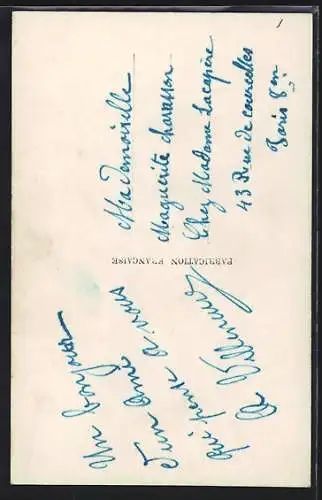 Mademoiselle
Marguerite Chavasson
Chez Madame Lacapère
43 Rue de courcelles
Paris 8 en
FABRICATION FRANÇAISE
Un bonjour
d'un ami à vous
qui pense